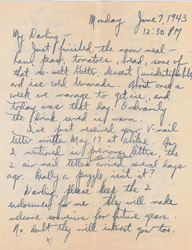 Monday June 7, 1943
12:30 PM
My Darling,
I Just finished the noon meal —
ham, peas, tomatoes, bread, some of
that so-salt butter, dessert
and ice cold lemonade. About once a
week we manage to get ice, and
today was that day. Ordinarily
the drink served is warm.
I've just received your V-mail
letter written May 17 at
I mentioned in previous letter the
2 air mail letters several days
ago. Really a puzzle, isn't it?
Darling, please keep the 2
enclosures for me. They will make
welcome souvenirs for future years.
No doubt they will interest you too.